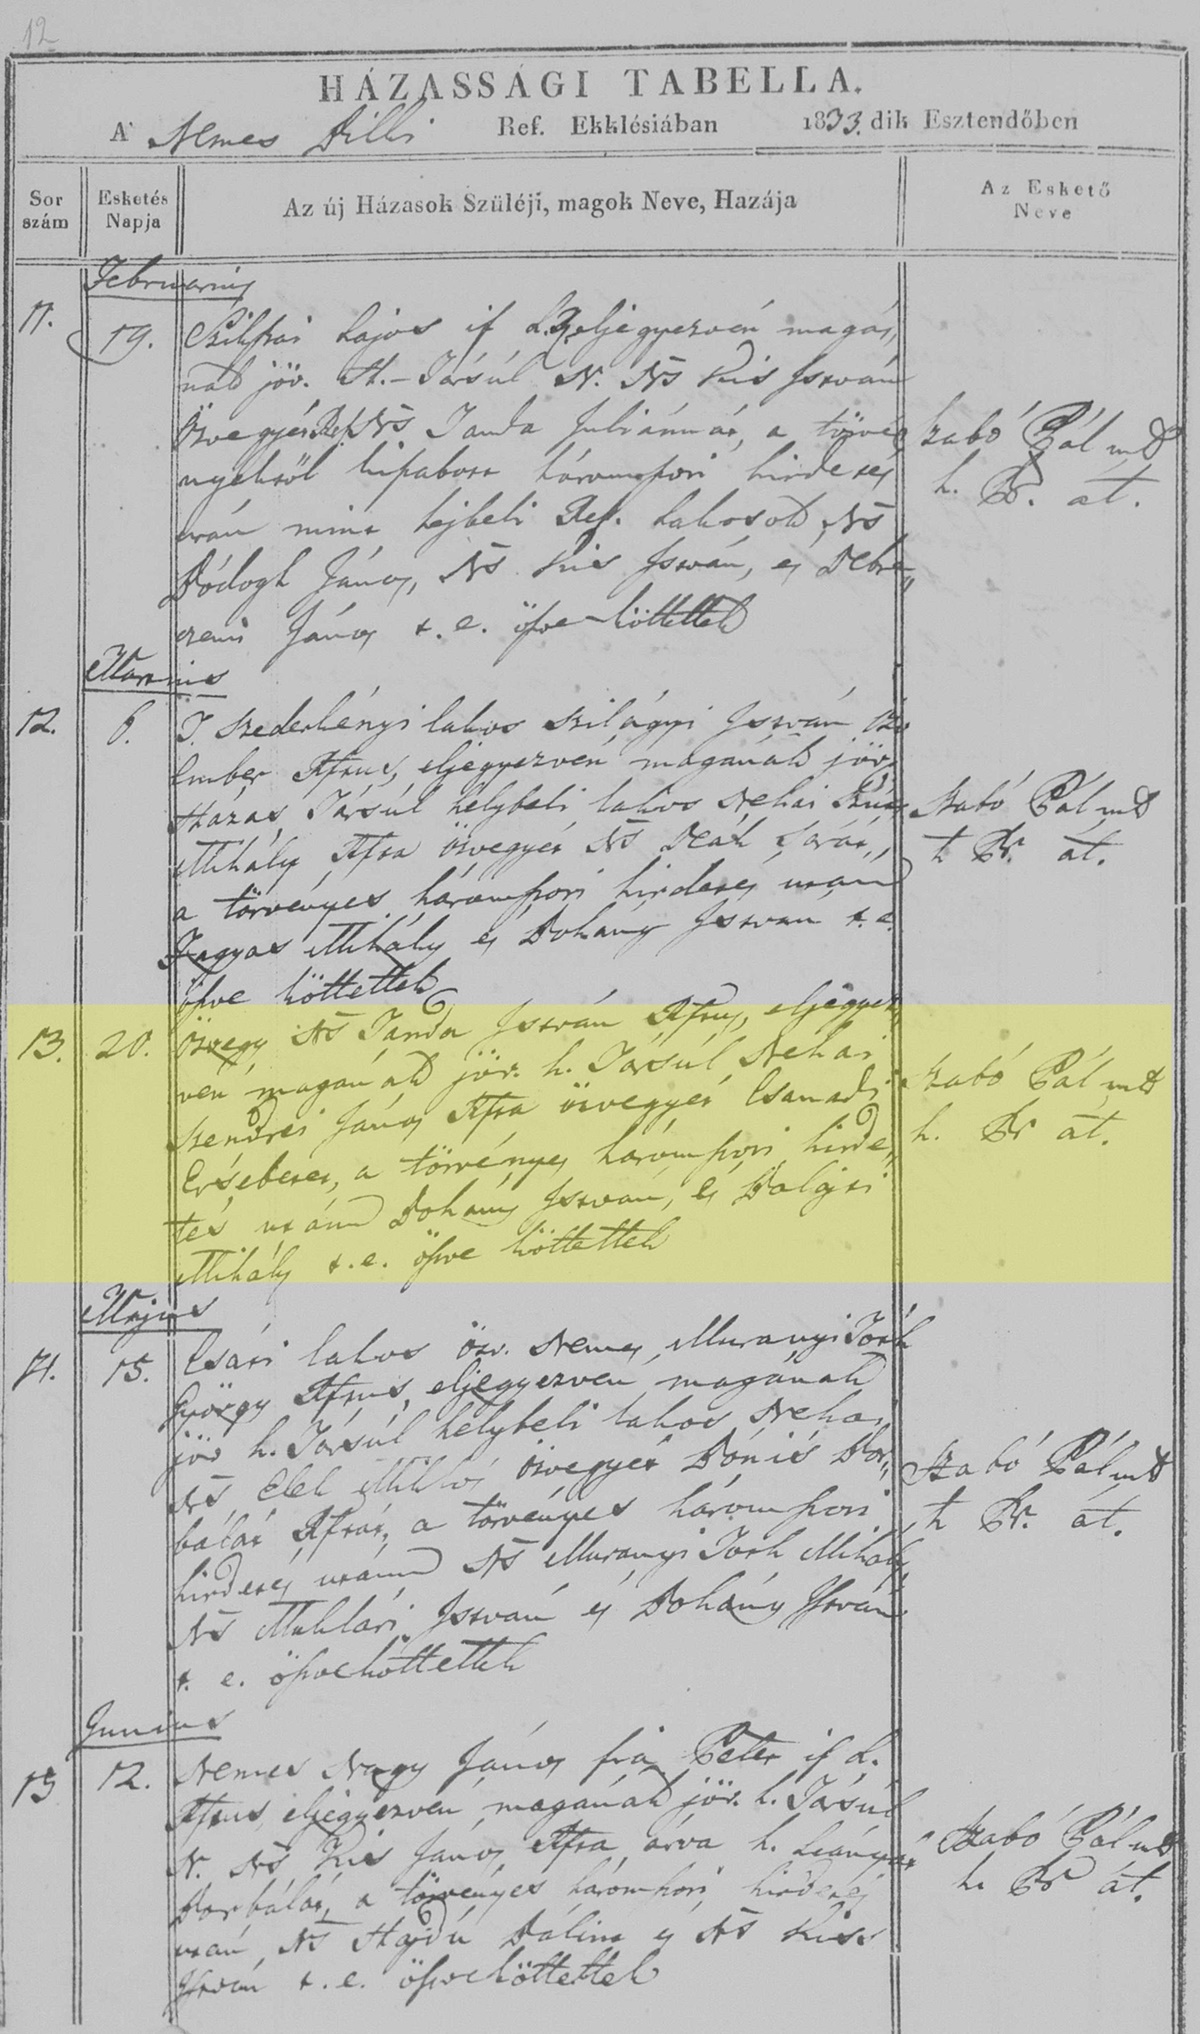 12
HÁZASSÁGI TABELLA.
A' Nemes Billi Ref. Ekklésiában 1833. dik Esztendőben
Sor szám
Esketés Napja
Az új Házasok Szüléji, magok Neve, Hazája
Az Eskető Neve
Februarius
11. 19. Lajos if L. eljegyezvén magá,
nak jöv. H.-Társúl N. Ns Kis István
özvegyét Ref. Ns Tanda Juliánnát, a törvé
háromszori hirdetés
után mint hejbeli Ref. Lakosok, Ns
János, Ns Kis István, és Debre,,
czeni János t. e. öszve köttettek
Szabó Pál mk
h. Pr. át.
Martius
12. 6. T. Szederkényi lakos Szilágyi István
Ember Rftus, eljegyezvén magának jöv.
Házas Társúl helybeli lakos Néhai
Mihály Rfta özvegyét Ns Deák Sárát,,
a törvényes háromszori hirdetés után
Mihály és Dohány István t. e.
öszve köttettek
Szabó Pál mk
h Pr. át.
13. 20. özvegy Ns Tanda István Rftus, eljegyez,
vén magának jöv. h. Társúl Néhai
Szendrei János Rfta özvegyét Csanadi
Ersébetet, a törvényes háromszori hirde,,
tés után Dohány István, és Balajti
Mihály t. e. öszve köttettek
Szabó Pál mk
h. Pr át.
Május
14. 15. Csáti lakos özv. Nemes Muranyi Tóth
György Rftus, eljegyezvén magának
jöv h. Társúl helybeli lakos Néhai
Ns Elek Miklós özvegyét Dónis Bor,,
bálát Rftát, a törvényes háromszori
hirdetés után Ns Muranyi Toth Mihály,
Ns Maklári István és Dohány István
t. e. öszveköttettek
Szabó Pál mk
h Pr. át.
Junius
15 12. Nemes Nagy János fia Péter if L.
Rftus, eljegyezvén magának jöv. h. Társúl
N. Ns Kis János Rfta árva h. Leányát
Borbálát, a törvényes háromszori hirdetés
után, Ns Hajdú Bálint és Ns Kiss
István t. e. öszveköttettek
Szabó Pál mk
h. Pr át.